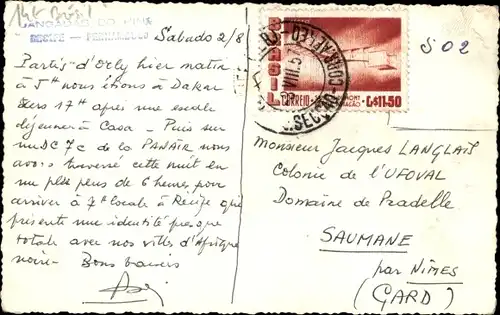 JANGADAS DO PINA
RECIFE - PERNAMBUCO
Sabado 2/8
Partis d'Orly hier matin
à 5h nous étions à Dakar
vers 17h après une escale
déjeuner à Casa - Puis sur
un DC 7c de la PANAIR nous
avons traversé cette nuit en
un peu plus de 6 heures pour
arriver à 7h locale à Recife que
présente une identité presque
totale avec nos villes d'Afrique
noire - Bons baisers
BRASIL
CORREIO
Cr$11,50
VIII.5
CORREIO AÉREO
S.SECÇÃO
S 02
Monsieur Jacques LANGLAIS
Colonie de l'UFOVAL
Domaine de Pradelle
SAUMANE
par NÎMES
(GARD)